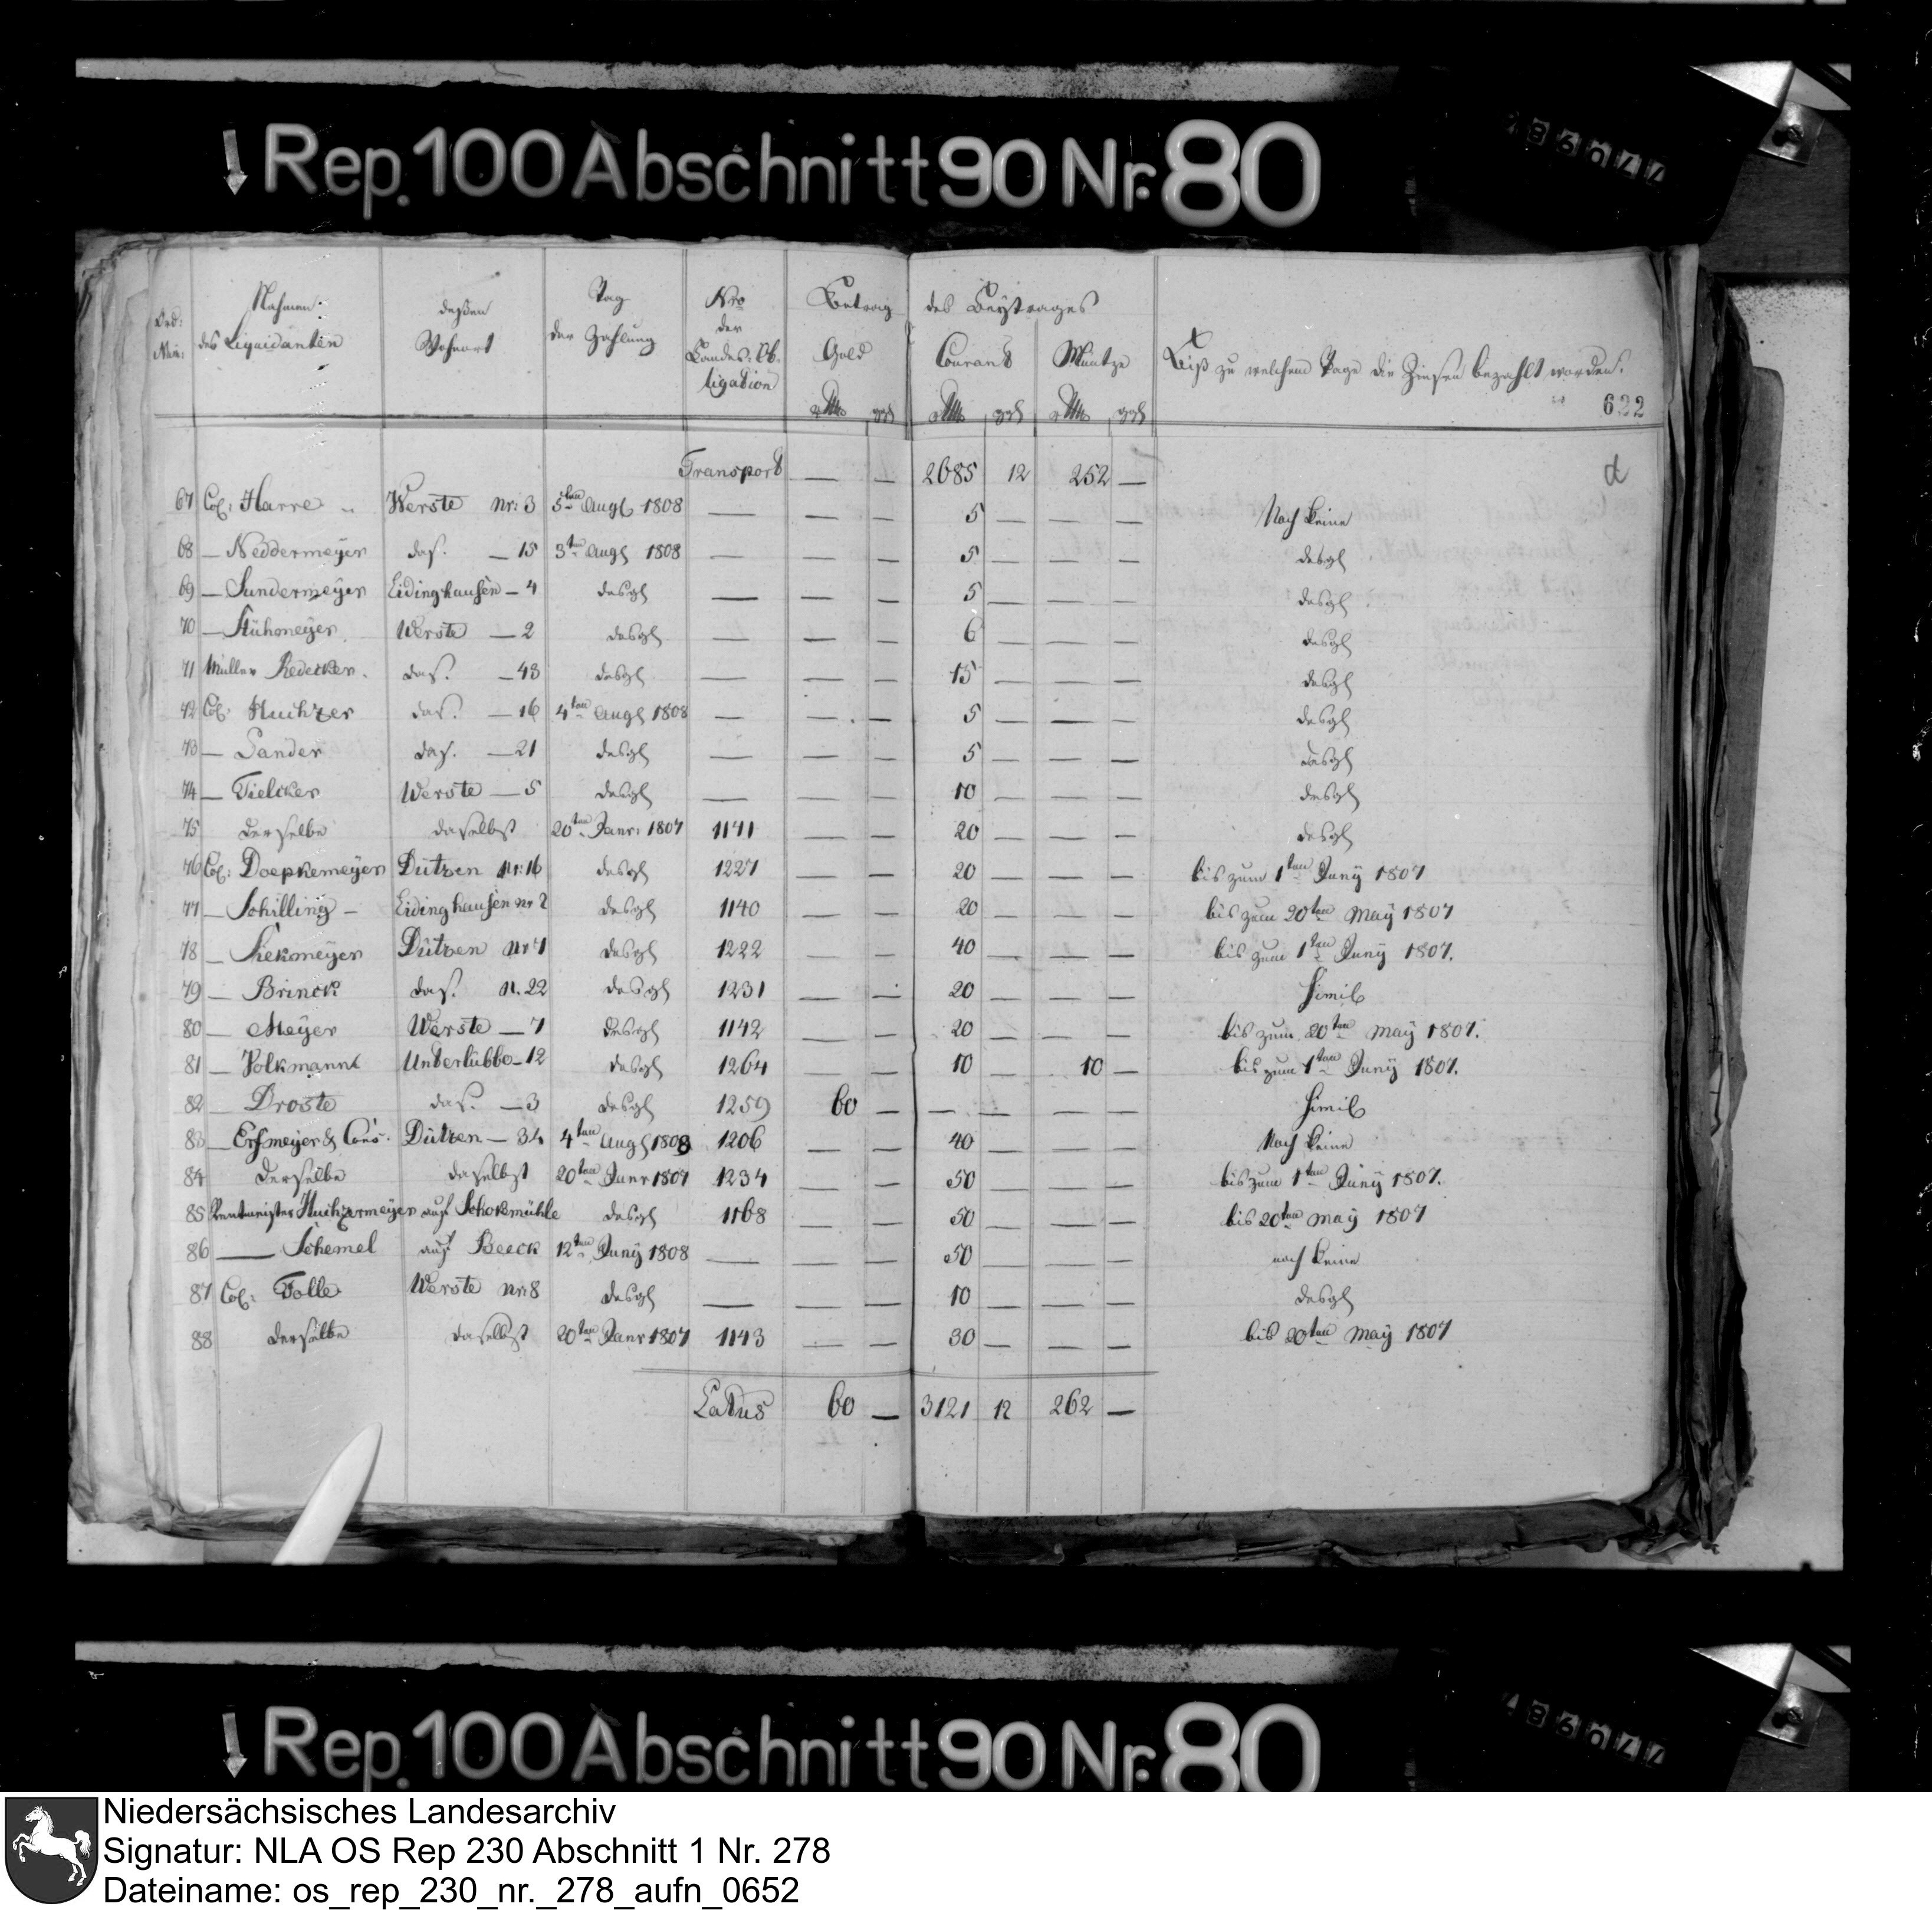 Rep. 100 Abschnitt 90 Nr. 80
Ord: Num: Nahmen des Liquidanten deßen Wohnort Tag der Zahlung Nro der Landes-Obligation Betrag des Beytrages Gold Courant Müntze Biß zu welchem Tage die Zinsen bezahlt worden.
rthlr ggl rthlr ggl rthlr ggl 622
Transport — — 2685 12 252 — d
67 Col: Harre Werste Nr: 3 5ten Augl 1808 — — — 5 — — — Noch keine
68 — Neddermeyer das. — 15 3ten Augl 1808 — — — 5 — — — desgl
69 — Sundermeyer Eidinghausen — 4 desgl — — — 5 — — — desgl
70 — Stühmeyer Werste — 2 desgl — — — 6 — — — desgl
71 Müller Redecker das. — 43 desgl — — — 15 — — — desgl
72 Col: das. — 16 4ten Augl 1808 — — — 5 — — — desgl
73 — Sander das. — 21 desgl — — — 5 — — — desgl
74 — Tielcker Werste — 5 desgl — — — 10 — — — desgl
75 derselbe daselbst 20ten Janr: 1807 1141 — — 20 — — — desgl
76 Col: Doepkemeyer Dützen Nr: 16 desgl 1227 — — 20 — — — bis zum 1ten Juny 1807
77 — Schilling — Eidinghausen nr 2 desgl 1140 — — 20 — — — bis zum 20ten May 1807
78 — Siekmeyer Dützen Nr 7 desgl 1222 — — 40 — — — bis zum 1ten Juny 1807.
79 — Brinck das. N. 22 desgl 1231 — — 20 — — — simil
80 — Meyer Werste — 7 desgl 1142 — — 20 — — — bis zum 20ten May 1807.
81 — Volkmann Unterlübbe — 12 desgl 1264 — — 10 — 10 — bis zum 1ten Juny 1807.
82 — Droste das. — 3 desgl 1259 60 — — — — — simil
83 — Erfmeyer & Cons. Dützen — 34 4ten Augl 1808 1206 — — 40 — — — Noch keine
84 derselbe daselbst 20ten Janr 1807 1234 — — 50 — — — bis zum 1ten Juny 1807.
85 Rentmeister Huchzermeyer auf Schockmühle desgl 1168 — — 50 — — — bis 20ten May 1807
86 — Schemel auf Beeck 12ten Juny 1808 — — — 50 — — — noch keine
87 Col: Tolle Werste Nr: 8 desgl — — — 10 — — — desgl
88 derselbe daselbst 20ten Janr 1807 1143 — — 30 — — — bis 20ten May 1807
Latus 60 — 3121 12 262 —
Rep. 100 Abschnitt 90 Nr. 80
Niedersächsisches Landesarchiv
Signatur: NLA OS Rep 230 Abschnitt 1 Nr. 278
Dateiname: os_rep_230_nr._278_aufn_0652